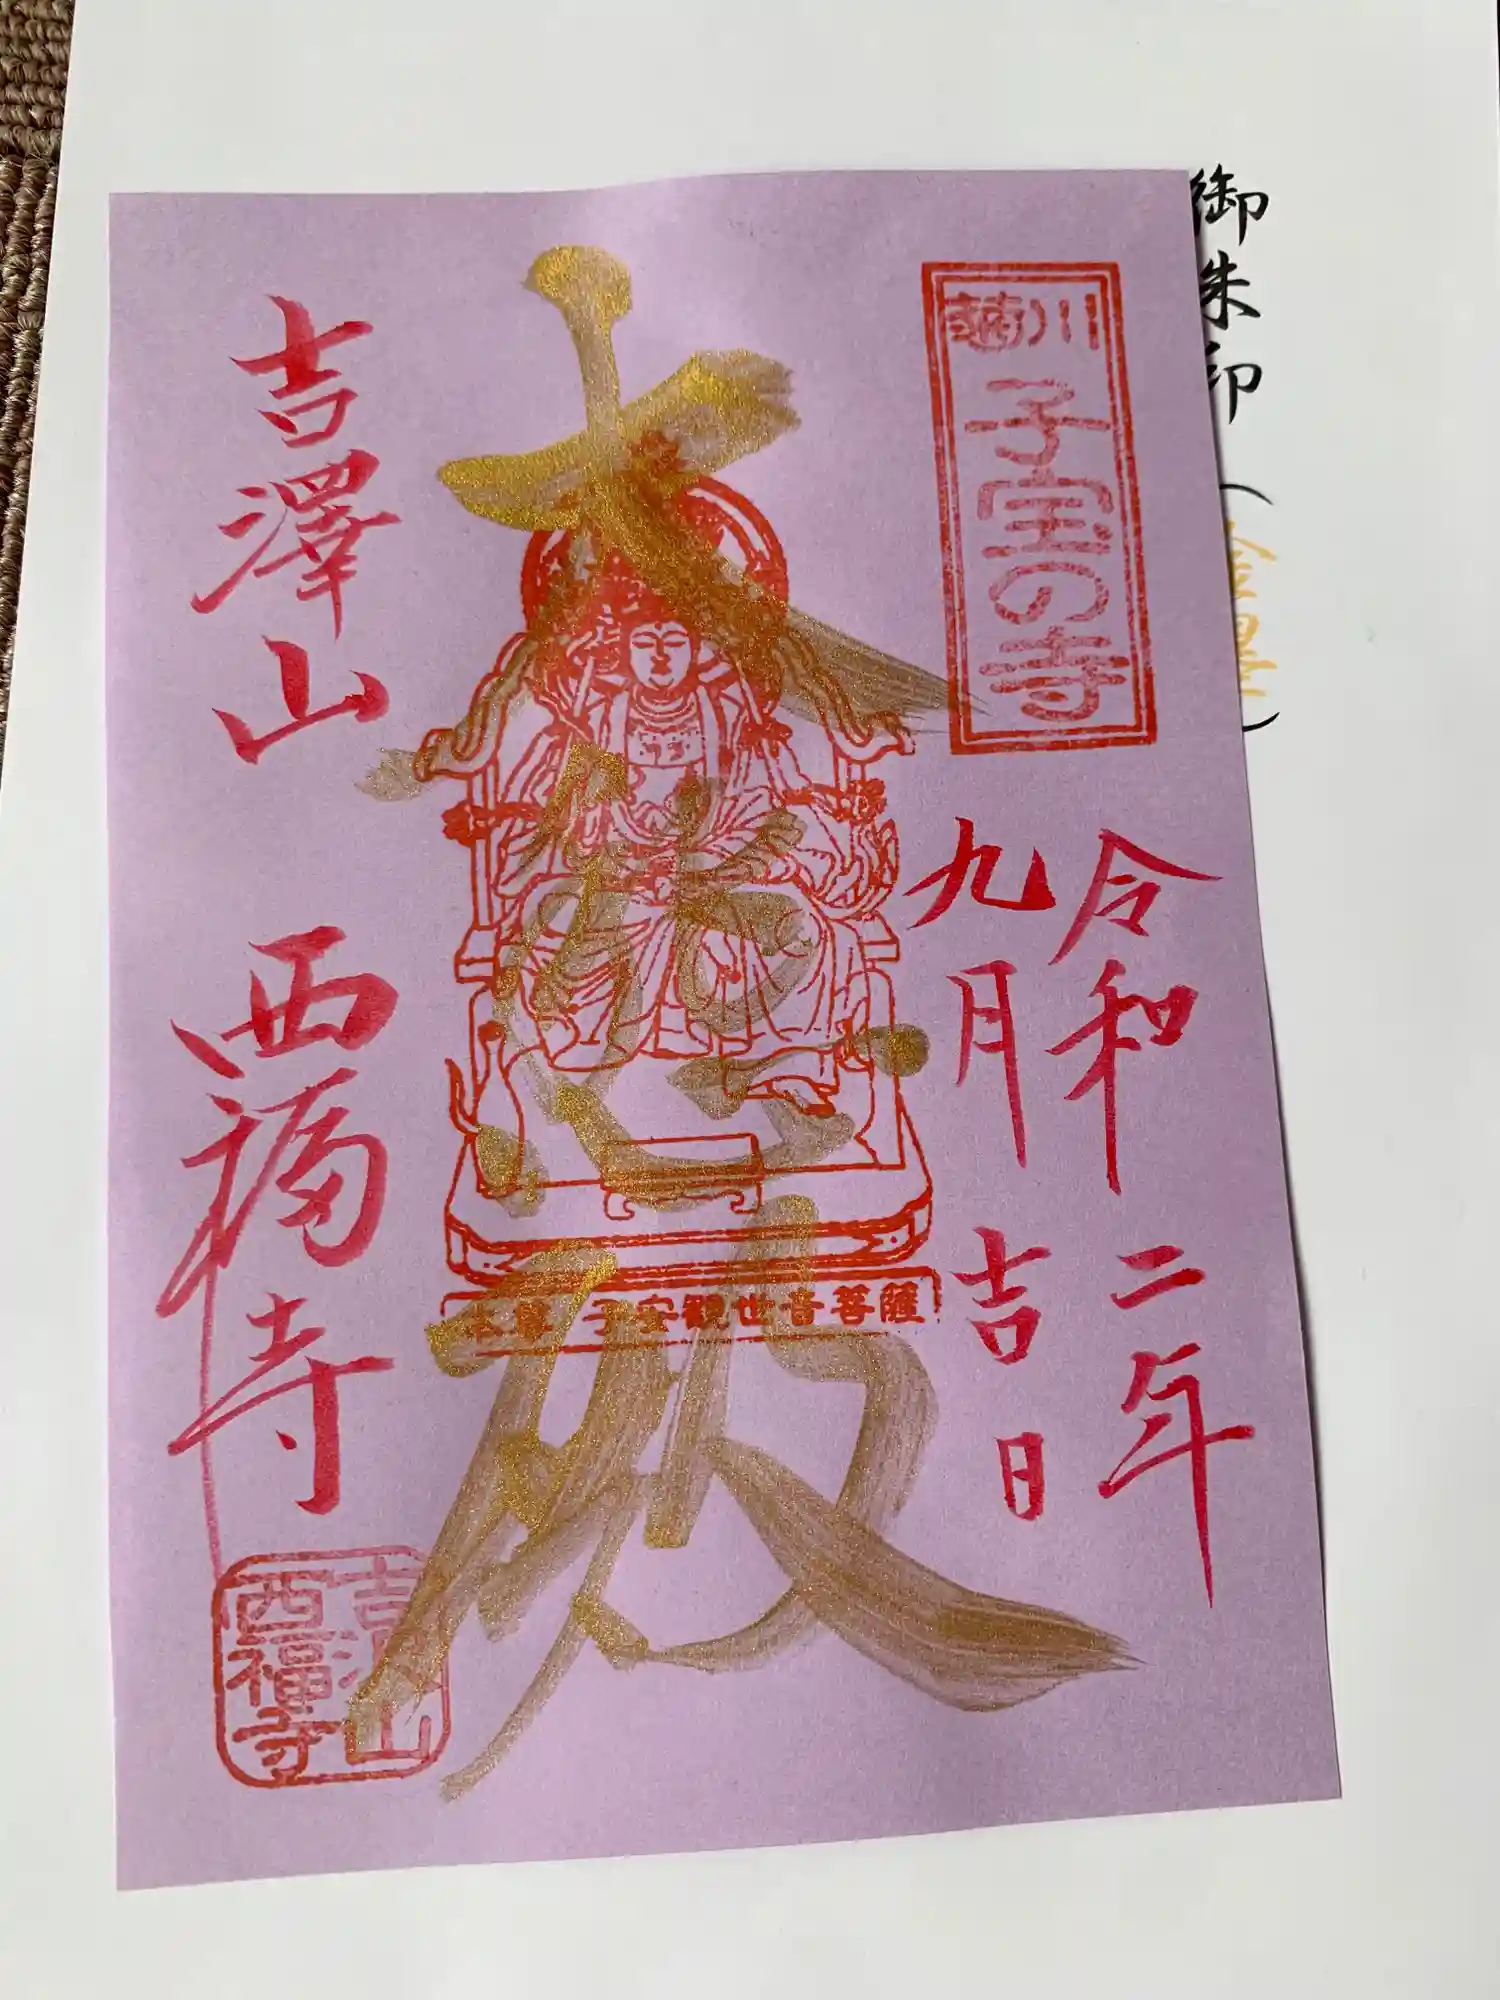 御朱印
菊川
子宝の寺
令和二年
九月吉日
大悲殿
本尊 子安觀世音菩薩
吉澤山 西福寺
吉沢山
西福寺